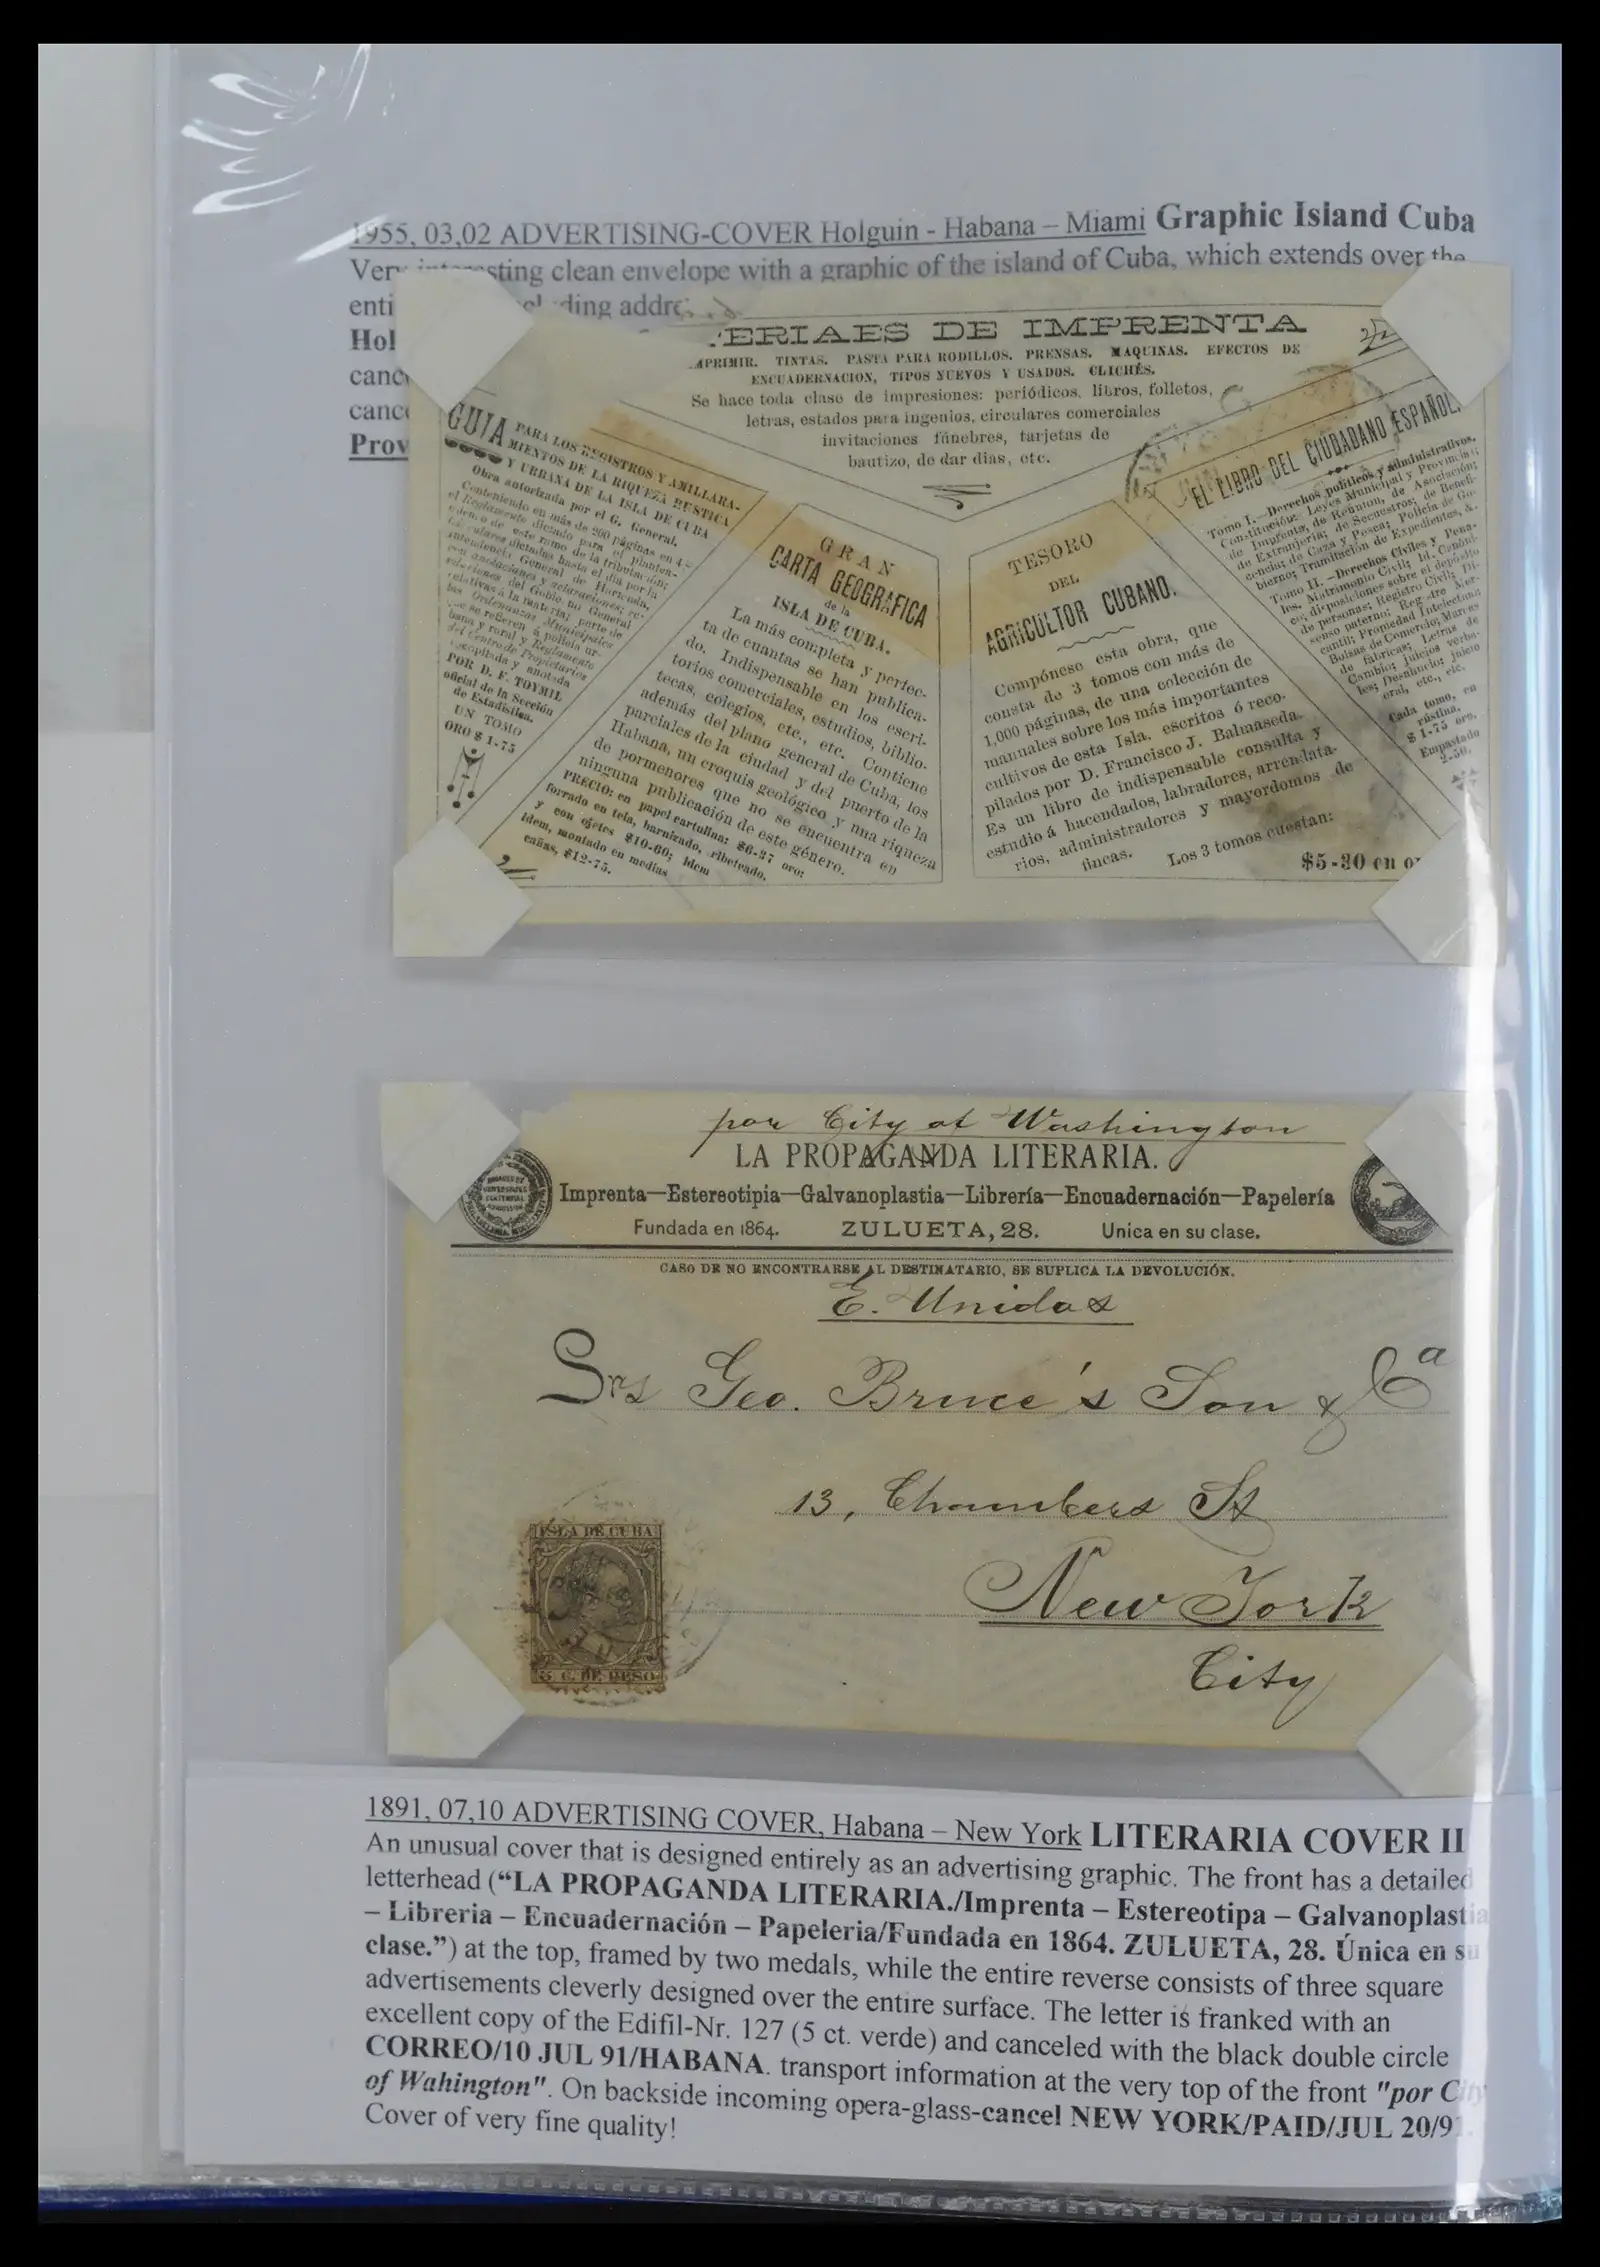 1955, 03,02 ADVERTISING-COVER Holguin - Habana – Miami Graphic Island Cuba
Very interesting clean envelope with a graphic of the island of Cuba, which extends over the
enti
ding addre
Hol
canc
canc
Prov
ERIAES DE IMPRENTA
MPRIMIR. TINTAS. PASTA PARA RODILLOS. PRENSAS. MAQUINAS. EFECTOS DE
ENCUADERNACION, TIPOS NUEVOS Y USADOS. CLICHÉS.
Se hace toda clase de impresiones: periódicos, libros, folletos,
letras, estados para ingenios, circulares comerciales
invitaciones fúnebres, tarjetas de
bautizo, de dar dias, etc.
GUIA PARA LOS REGISTROS Y AMILLARA-
MIENTOS DE LA RIQUEZA RUSTICA
Y URBANA DE LA ISLA DE CUBA
Obra autorizada por el G. General.
Conteniendo en más de 200 páginas en 4.º
el Reglamento dictado para el plantea-
de este ramo de la tributación;
dictadas hasta el día por la
Intendencia General de Hacienda,
con anotaciones y aclaraciones; re-
soluciones del Gobierno General
relativas á la materia; parte de
las Ordenanzas Municipales
que se refieren á policía ur-
bana y rural y Reglamento
del Centro de Propietarios
copilada y anotada
POR D. F. TOYMIL
oficial de la Sección
de Estadística.
UN TOMO
ORO $ 1-75
GRAN
CARTA GEOGRAFICA
de la
ISLA DE CUBA.
La más completa y perfec-
ta de cuantas se han publica-
do. Indispensable en los escri-
torios comerciales, estudios, biblio-
tecas, colegios, etc., etc. Contiene
además del plano general de Cuba, los
parciales de la ciudad y del puerto de la
Habana, un croquis geológico y una riqueza
de pormenores que no se encuentra en
ninguna publicación de este género.
PRECIO: en papel cartulina: $6-37 oro:
forrado en tela, barnizado, ribeteado,
y con ojetes $10-60; Idem
idem, montado en medias
cañas, $12-75.
TESORO
DEL
AGRICULTOR CUBANO.
Compónese esta obra, que
consta de 3 tomos con más de
1,000 páginas, de una colección de
manuales sobre los más importantes
cultivos de esta Isla, escritos ó reco-
pilados por D. Francisco J. Balmaseda.
Es un libro de indispensable consulta y
estudio á hacendados, labradores, arrendata-
rios, administradores y mayordomos de
fincas. Los 3 tomos cuestan:
$5-30 en o
EL LIBRO DEL CIUDADANO ESPAÑOL.
Tomo I.—Derechos políticos y administrativos.
Constitución; Leyes Municipal y Provincial;
de Imprenta, de Reunion, de Asociacion;
de Extranjería; de Secuestros; de Benefi-
cencia; de Caza y Pesca; Policía de Go-
bierno; Tramitación de Expedientes, &.
Tomo II.—Derechos Civiles y Pena-
les. Matrimonio Civil; Id. Canóni-
co; disposiciones sobre el depósito
de personas; Registro Civil; Di-
senso paterno; Registro Mer-
cantil; Propiedad Intelectual
Bolsas de Comercio; Marcas
de fábricas; Letras de
Cambio; juicios verba-
les; Desahucio; juicio
oral, etc., etc.
Cada tomo, en
rústica,
$ 1-75 oro.
Empastado
2-50.
por City of Washington
LA PROPAGANDA LITERARIA.
Imprenta—Estereotipia—Galvanoplastia—Librería—Encuadernación—Papelería
Fundada en 1864. ZULUETA, 28. Unica en su clase.
CASO DE NO ENCONTRARSE AL DESTINATARIO, SE SUPLICA LA DEVOLUCIÓN.
E. Unidos
Srs Geo. Bruce's Son & Ca
13, Chambers St
New York
City
ISLA DE CUBA
5 C. DE PESO
1891, 07,10 ADVERTISING COVER, Habana – New York LITERARIA COVER II
An unusual cover that is designed entirely as an advertising graphic. The front has a detailed
letterhead (“LA PROPAGANDA LITERARIA./Imprenta – Estereotipa – Galvanoplastia
– Libreria – Encuadernación – Papeleria/Fundada en 1864. ZULUETA, 28. Única en su
clase.”) at the top, framed by two medals, while the entire reverse consists of three square
advertisements cleverly designed over the entire surface. The letter is franked with an
excellent copy of the Edifil-Nr. 127 (5 ct. verde) and canceled with the black double circle
CORREO/10 JUL 91/HABANA. transport information at the very top of the front "por City
of Wahington". On backside incoming opera-glass-cancel NEW YORK/PAID/JUL 20/91.
Cover of very fine quality!